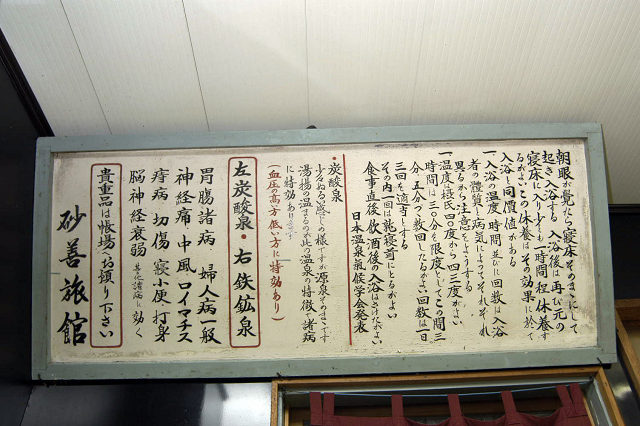 朝眼が覚たら寝床そのままにして
起き入浴する 入浴後は再び元の
寝床に入り少くも一時間程休養す
るがよいこの休養はその効果に於て
入浴と同價値がある
一入浴の温度 時間 並びに回数は入浴
者の體質と病気によってそれぞれ
異るから注意をようする
一温度は摂氏四〇度から四三度がよい
時間は三〇分を限度としてこの間三
分、五分つゝ数回にわたるがよい 回数は一日
三回を適
その内一回は就寝前にとるがよい
食事直後、飲酒後の入浴はさけたがよい
日本温泉氣候学会発表
・炭酸泉
少々ぬる
湯揚の温まるのが此の温泉の特徴で諸病
に特効あります
(血圧の高い方低い方に特効あり)
左炭酸泉・右鉄鉱泉
胃腸諸病 婦人病一般
神経痛 中風 ロイマチス
痔病 切傷 寝小便 打身
脳神経衰弱 其他諸病に効く
貴重品は帳場へお預り下さい
砂善旅館